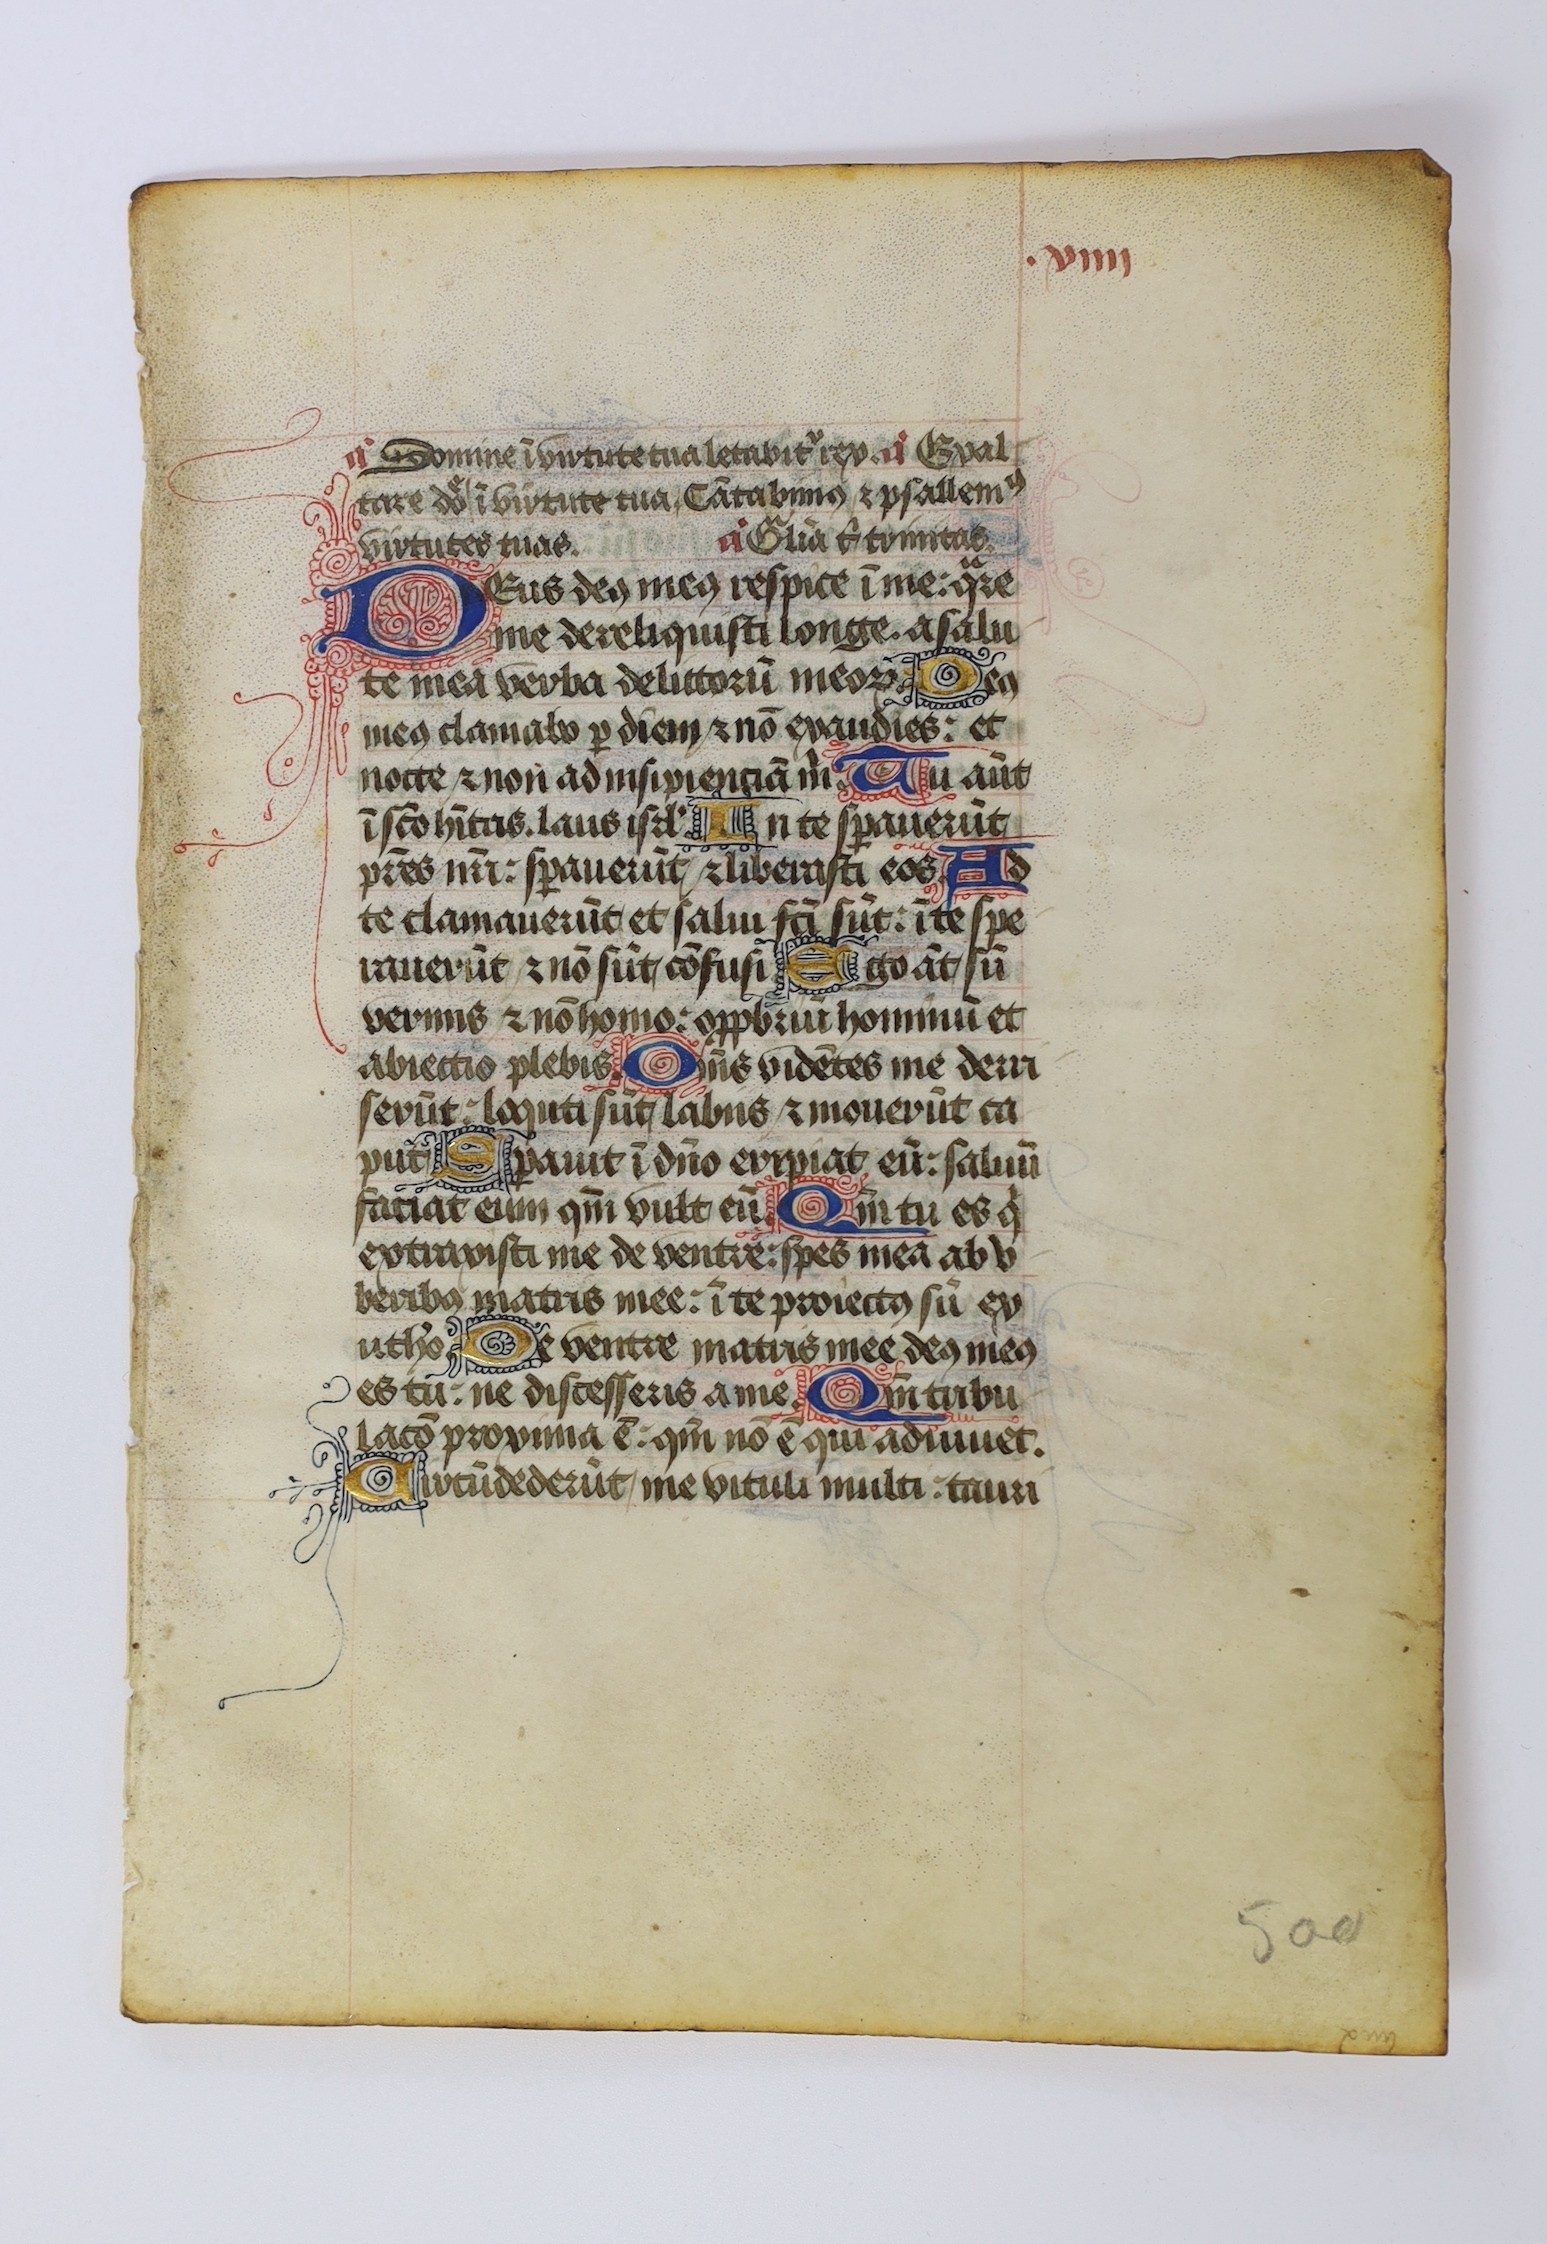 . viiii
a᷎ Domine ī virtute tua letabit᷑ rex. a᷎ Exal
tare dn̄e ī virtute tua. Cātabimꝰ ⁊ psallemꝰ
virtutes tuas. a᷎ Gl̄ia t̄ trinitas.
DEus deꝰ meꝰ respice ī me: q̄re
me dereliquisti longe. a salu
te mea verba delictorū meoꝝ. Deꝰ
meꝰ clamabo ꝑ diem ⁊ nō exaudies: et
nocte ⁊ non ad insipienciā m̄. Tu aūt
ī sc̄o hītas. laus isrl̄. In te sꝑauerūt
pr̄es nr̄i: sꝑauerūt ⁊ liberasti eos. Ad
te clamauerūt et salui fc̄i sūt: ī te spe
rauerūt ⁊ nō sūt cōfusi Ego āt sū
vermis ⁊ nō homo: opp̄briū hominū et
abiectio plebis. Om̄s vidētes me deri
serūt: locuti sūt labiis ⁊ mouerūt ca
put Sꝑauit ī dn̄o eripiat eū: saluū
faciat eum qm̄ vult eū. Qm̄ tu es q̇
extraxisti me de ventre: spes mea ab v
beribꝰ matris mee: ī te proiectꝰ sū ex
uth̄o. De ventre matris mee deꝰ meꝰ
es tu: ne discesseris a me. Qm̄ tribu
lacō proxima ē: qm̄ nō ē qui adiuuet.
Circūdederūt me vituli multi: tauri
500